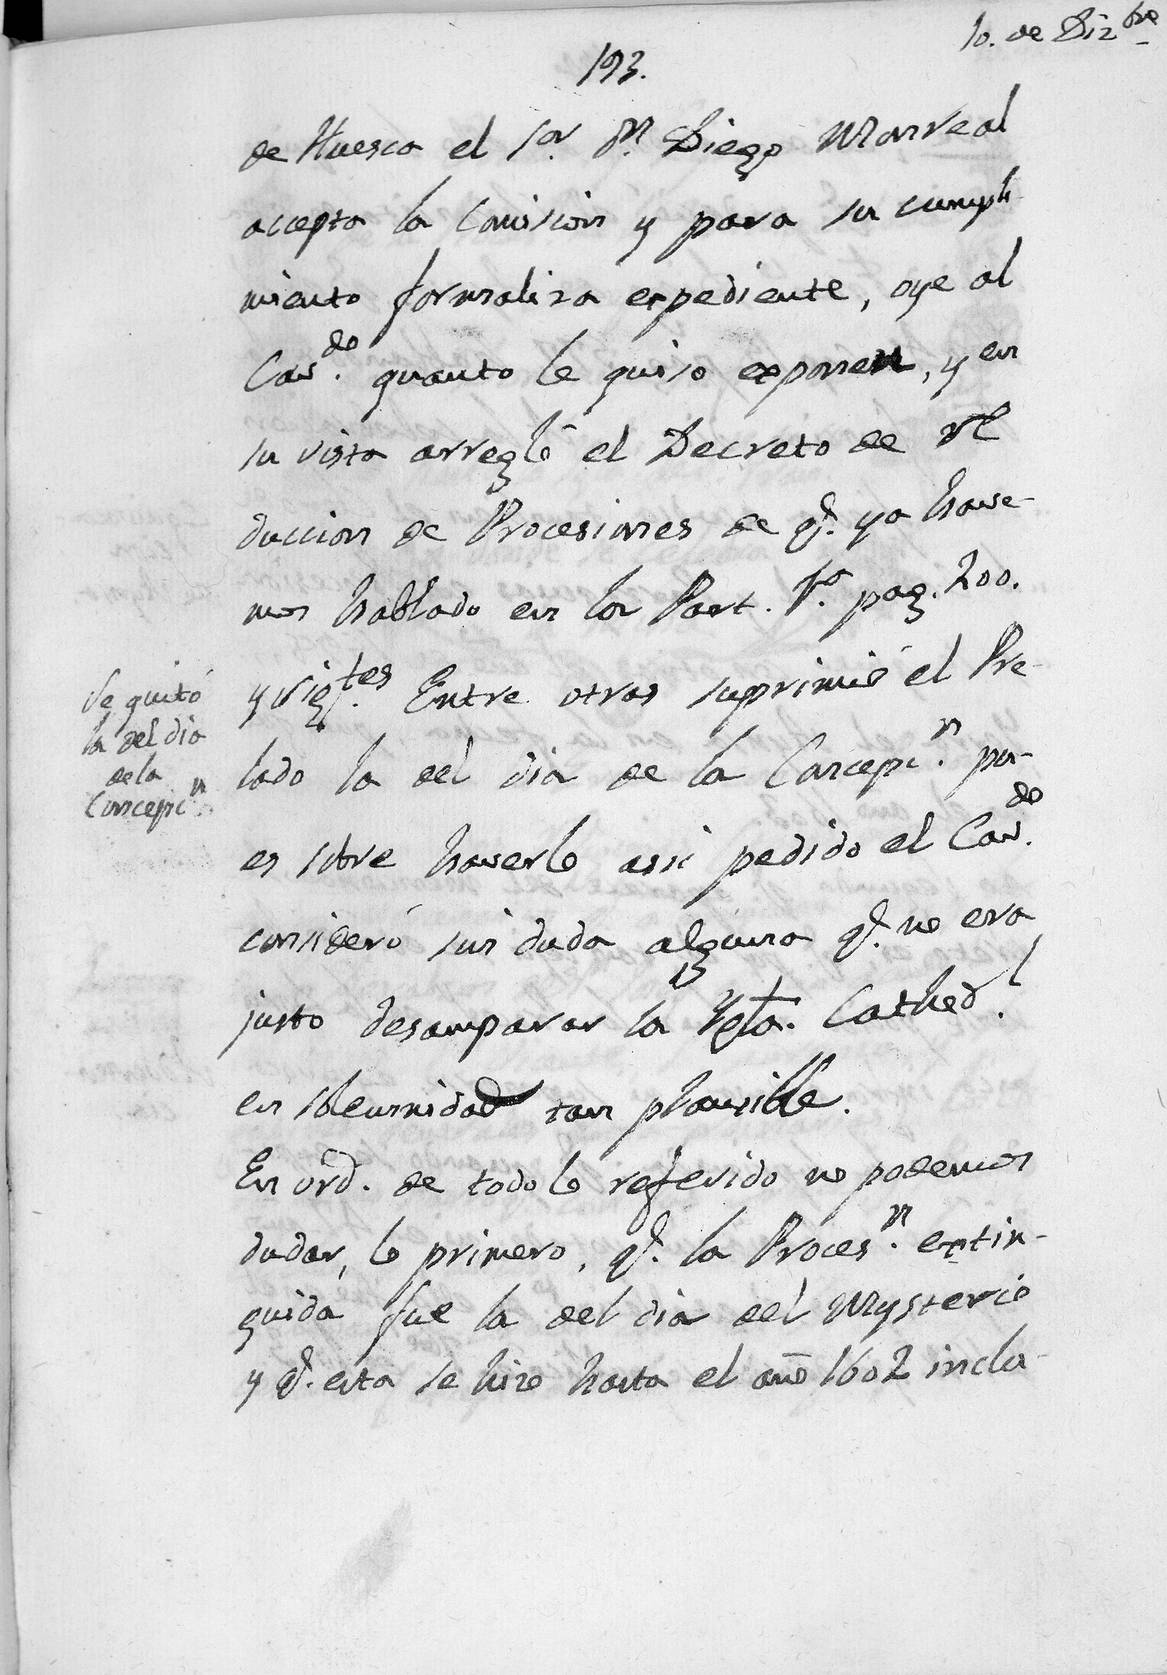 10. de Dizbre
193.
de Huesca el Sor. Dn. Diego Monreal
accepta la Comision y para su cumpli
miento formaliza expediente, oye al
Cavdo. quanto le quiso exponer, y en
su vista arregló el Decreto de re
duccion de Procesiones de q. ya have-
mos hablado en la Part. 1a. pag. 200.
y sigtes. Entre otras suprimió el Pre-
lado la del dia de la Concepcn. pu-
es sobre haverlo assi pedido el Cavdo.
consideró sin duda alguna q. no era
justo desamparar la Ygla. Cathedl.
en solemnidad tan plausible.
Se quitó
la del dia
de la
Concepcn.
En ord. de todo lo referido no podemos
dudar, lo primero, q. la Procesn. extin-
guida fue la del dia del Mysterio
y q. esta se hizo hasta el año 1602 inclu-